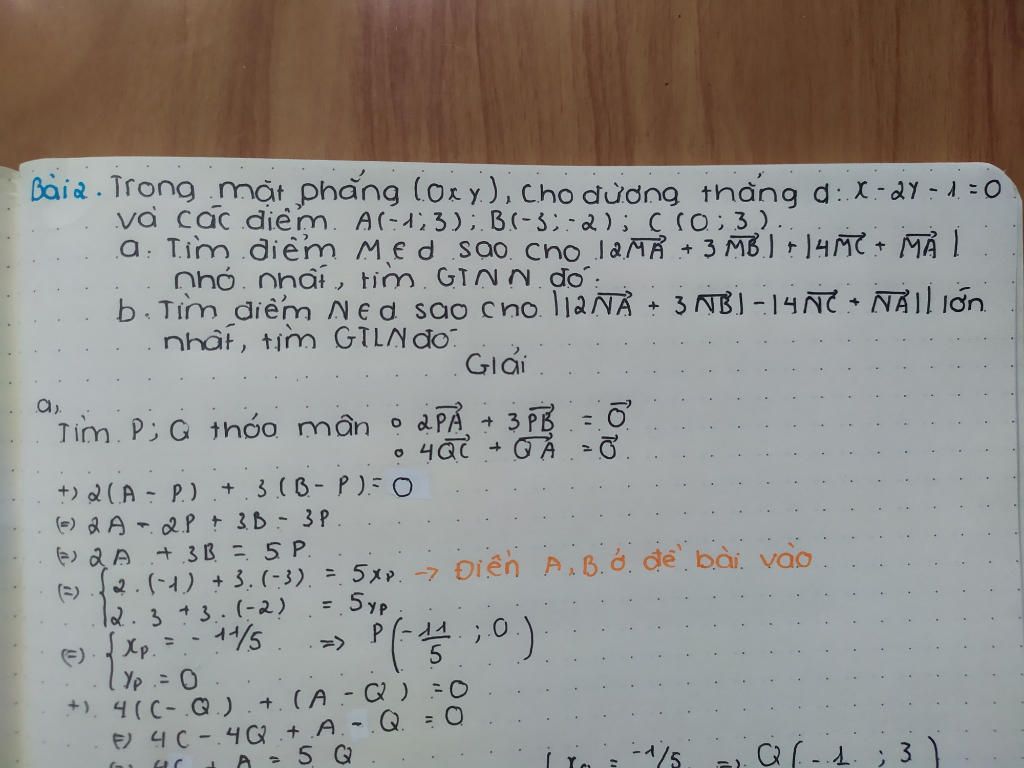 Bài 2. Trong mặt phẳng (Oxy), cho đường thẳng d: x - 2y - 1 = 0
và các điểm A(-1; 3); B(-3; -2); C(0; 3).
a. Tìm điểm M ∈ d sao cho |2MA + 3MB| + |4MC + MA|
nhỏ nhất, tìm GTNN đó.
b. Tìm điểm N ∈ d sao cho ||2NA + 3NB| - |4NC + NA|| lớn
nhất, tìm GTLN đó.
Giải
a,
Tìm P; Q thỏa mãn ∘ 2PA + 3PB = 0
∘ 4QC + QA = 0
+) 2(A - P) + 3(B - P) = 0
(=) 2A - 2P + 3B - 3P
(=) 2A + 3B = 5P
(=) { 2.(-1) + 3.(-3) = 5xp → Điền A, B ở đề bài vào
2.3 + 3.(-2) = 5yp
(=) { xp = -11/5 => P(-11/5 ; 0)
yp = 0
+) 4(C - Q) + (A - Q) = 0
(=) 4C - 4Q + A - Q = 0
(=) 4C + A = 5Q
{ xQ = -1/5 => Q(-1 ; 3)